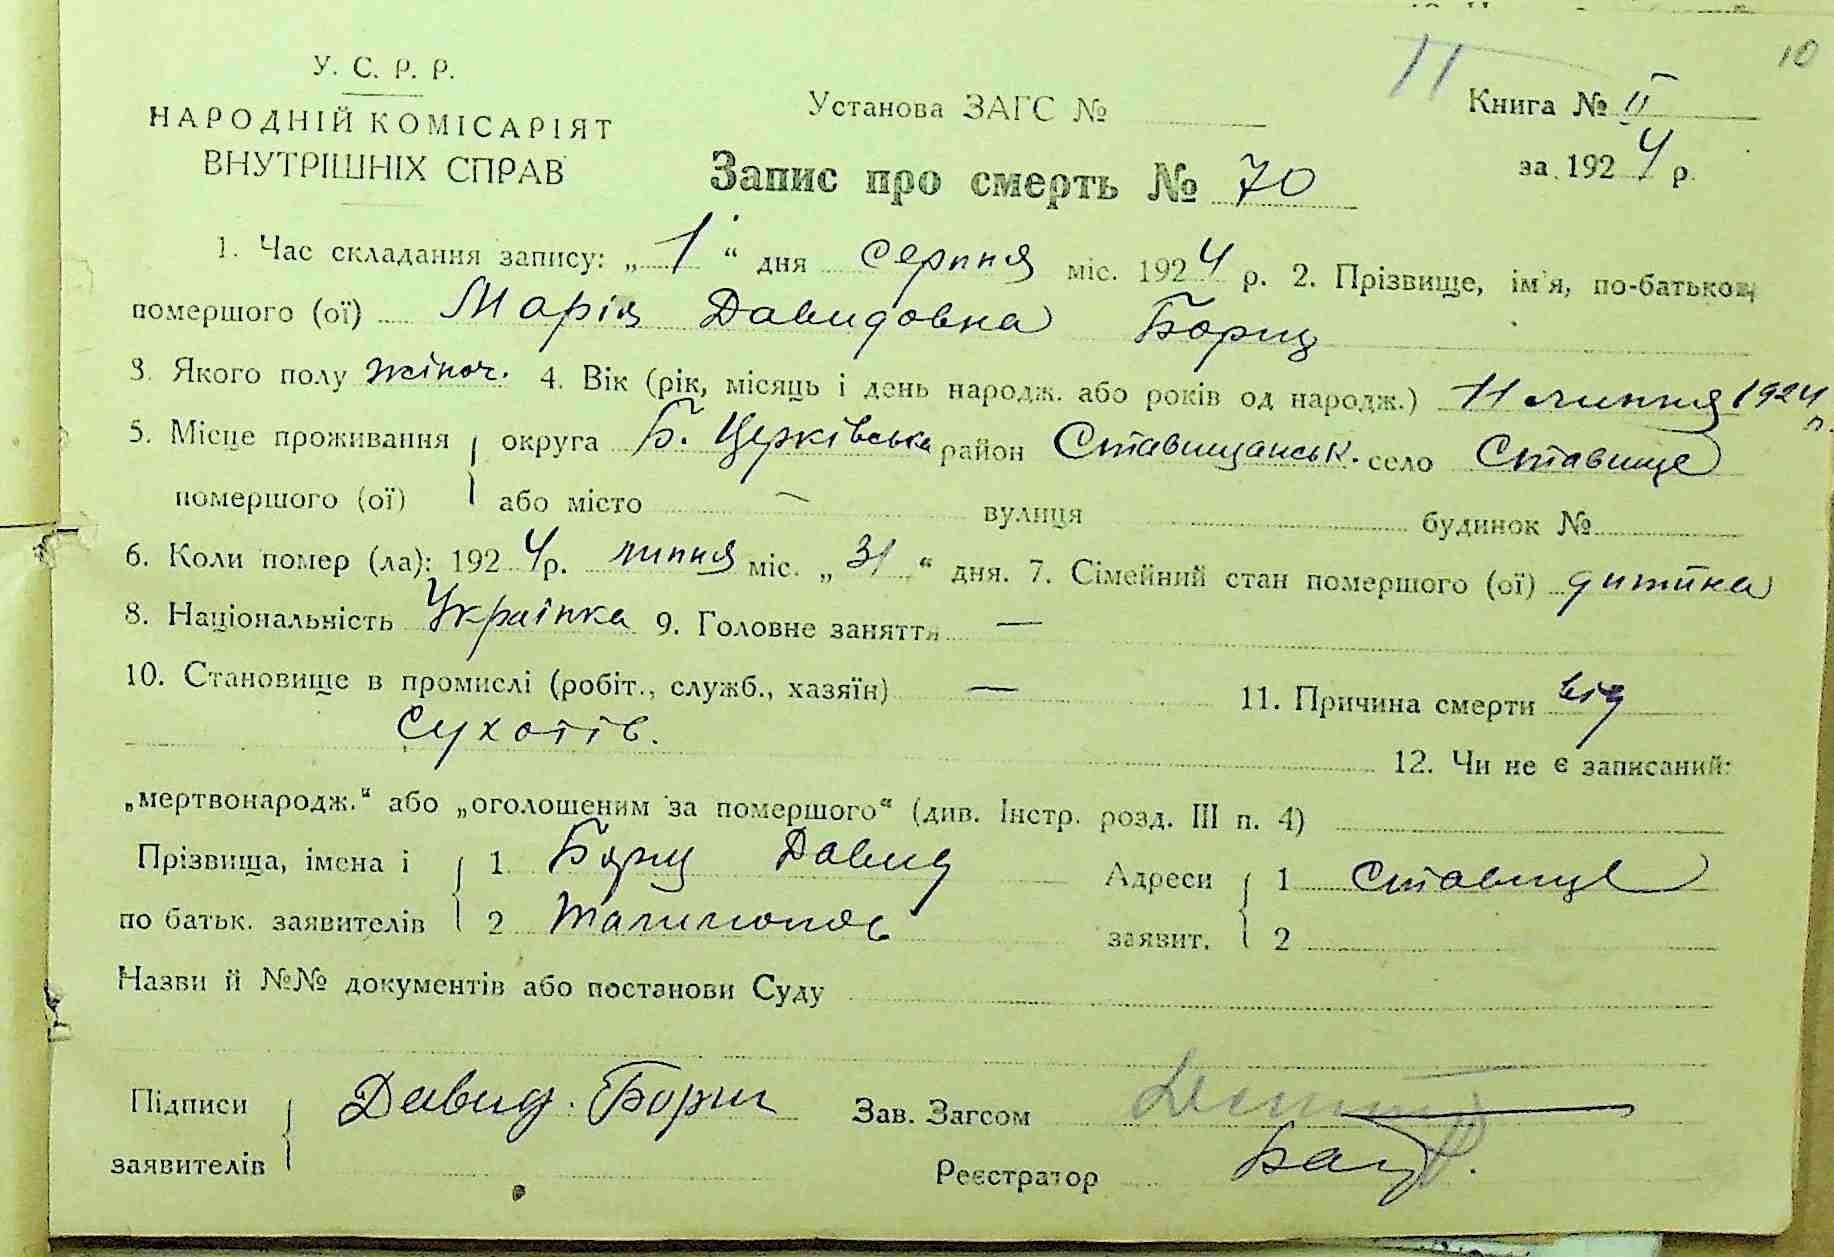 10
У. С. Р. Р.
НАРОДНІЙ КОМІСАРІЯТ
ВНУТРІШНІХ СПРАВ
Установа ЗАГС №
II
Книга № II
за 1924 р.
Запис про смерть № 70
1. Час складання запису: „1“ дня серпня міс. 1924 р. 2. Прізвище, ім'я, по-батькові
помершого (ої) Марія Давидовна Борщ
3. Якого полу жіноч. 4. Вік (рік, місяць і день народж. або років од народж.) 11 липня 1924 р.
5. Місце проживання округа Б. Церківська район Ставищанськ. село Ставище
помершого (ої) або місто — вулиця будинок №
6. Коли помер (ла): 1924 р. липня міс. „31“ дня. 7. Сімейний стан помершого (ої) дитина
8. Національність Українка 9. Головне заняття —
10. Становище в промислі (робіт., служб., хазяїн) — 11. Причина смерти від
сухотів.
12. Чи не є записаний:
„мертвонародж.“ або „оголошеним за помершого“ (див. Інстр. розд. III п. 4)
Прізвища, імена і 1 Борщ Давид Адреси 1 Ставище
по батьк. заявителів 2 заявит. 2
Назви й №№ документів або постанови Суду
Підписи Давид Борщ Зав. Загсом
заявителів Реєстратор